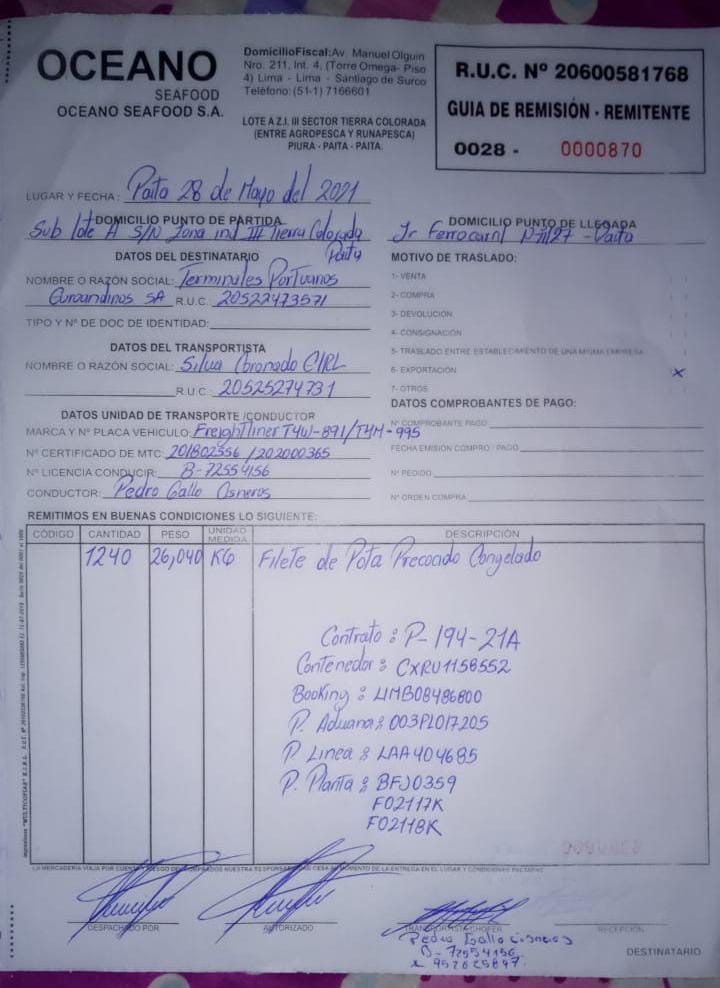 OCEANO
SEAFOOD
OCEANO SEAFOOD S.A.
Domicilio Fiscal: Av. Manuel Olguin
Nro. 211, Int. 4, (Torre Omega- Piso
4) Lima - Lima - Santiago de Surco
Teléfono: (51-1) 7166601
LOTE A Z.I. III SECTOR TIERRA COLORADA
(ENTRE AGROPESCA Y RUNAPESCA)
PIURA - PAITA - PAITA.
R.U.C. Nº 20600581768
GUIA DE REMISIÓN - REMITENTE
0028 - 0000870
LUGAR Y FECHA: Paita 28 de Mayo del 2021
DOMICILIO PUNTO DE PARTIDA
Sub lote A S/N Zona ind III Tierra Colorada
Paita
DOMICILIO PUNTO DE LLEGADA
Jr Ferrocarril Nº 127 - Paita
DATOS DEL DESTINATARIO
NOMBRE O RAZÓN SOCIAL: Terminales Portuarios
Euroandinos SA R.U.C. 20522473571
TIPO Y Nº DE DOC DE IDENTIDAD:
DATOS DEL TRANSPORTISTA
NOMBRE O RAZÓN SOCIAL: Silva Coronado EIRL
R.U.C. 20525274731
DATOS UNIDAD DE TRANSPORTE /CONDUCTOR
MARCA Y Nº PLACA VEHICULO: Freightliner T4W-891/T4M-995
Nº CERTIFICADO DE MTC: 201802356 / 202000365
Nº LICENCIA CONDUCIR: B-72554156
CONDUCTOR: Pedro Gallo Cisneros
MOTIVO DE TRASLADO:
1- VENTA
2- COMPRA
3- DEVOLUCION
4- CONSIGNACIÓN
5- TRASLADO ENTRE ESTABLECIMIENTO DE UNA MISMA EMPRESA
6- EXPORTACIÓN x
7- OTROS
DATOS COMPROBANTES DE PAGO:
Nº COMPROBANTE PAGO:
FECHA EMISIÓN COMPRO / PAGO
Nº PEDIDO
Nº ORDEN COMPRA
REMITIMOS EN BUENAS CONDICIONES LO SIGUIENTE:
CÓDIGO CANTIDAD PESO UNIDAD MEDIDA DESCRIPCIÓN
1240 26,040 KG Filete de Pota Precocido Congelado
Contrato : P-194-21A
Contenedor : CXRU1158552
Booking : LIMB08486800
P. Aduana : 003PL017205
P. Linea : LAA404685
P. Planta : BFJ0359
F02117K
F02118K
LA MERCADERIA VIAJA POR CUENTA Y RIESGO DEL COMPRADOS NUESTRA RESPONSABILIDAD CESA AL MOMENTO DE LA ENTREGA EN EL LUGAR Y CONDICIONES PACTADAS
DESPACHADO POR
AUTORIZADO
TRANSPORTISTA CHOFER
RECEPCIÓN
Pedro Gallo Cisneros
B-72554156
DESTINATARIO